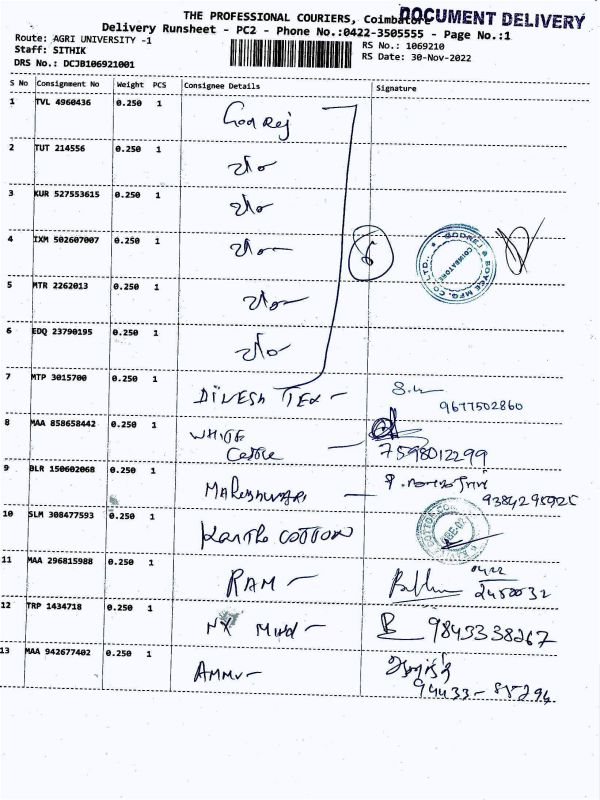 THE PROFESSIONAL COURIERS, Coimbatore
DOCUMENT DELIVERY
Delivery Runsheet - PC2 - Phone No.:0422-3505555 - Page No.:1
Route: AGRI UNIVERSITY -1
RS No.: 1069210
Staff: SITHIK
RS Date: 30-Nov-2022
DRS No.: DCJB106921001
S No Consignment No Weight PCS Consignee Details Signature
1 TVL 4960436 0.250 1 Godrej
2 TUT 214556 0.250 1
3 KUR 527553615 0.250 1
4 IXM 502607007 0.250 1
6
GODREJ & BOYCE MFG. CO LTD.,
COIMBATORE
5 MTR 2262013 0.250 1
6 EDQ 23790195 0.250 1
7 MTP 3015700 0.250 1 DINESH TEX -
9677502860
8 MAA 858658442 0.250 1 WHITE
Castle - 7598012299
9 BLR 150602068 0.250 1 MAHESHWARI -
9384295925
10 SLM 308477593 0.250 1 COTTON
11 MAA 296815988 0.250 1 RAM -
0422
2450032
12 TRP 1434718 0.250 1 NX Mind - B 9843338267
13 MAA 942677402 0.250 1 AMMU -
94433-85294